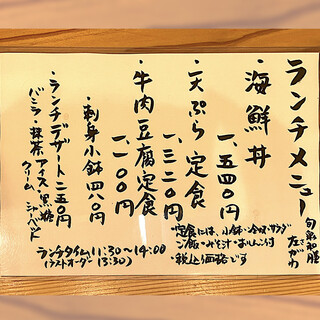 ランチメニュー
・海鮮丼
一、五四〇円
・天ぷら定食
一、三二〇円
・牛肉豆腐定食
一、一〇〇円
刺身小鉢四八〇円
・ランチデザート二五〇円
バニラ・抹茶アイス・黒糖
クリーム シャーベット
ランチタイム11:30〜14:00
(ラストオーダー13:30)
・定食には、小鉢・冷奴・サラダ
ご飯・みそ汁・おしんこ付
・税込価格です
旬泉和膳
左さがわ